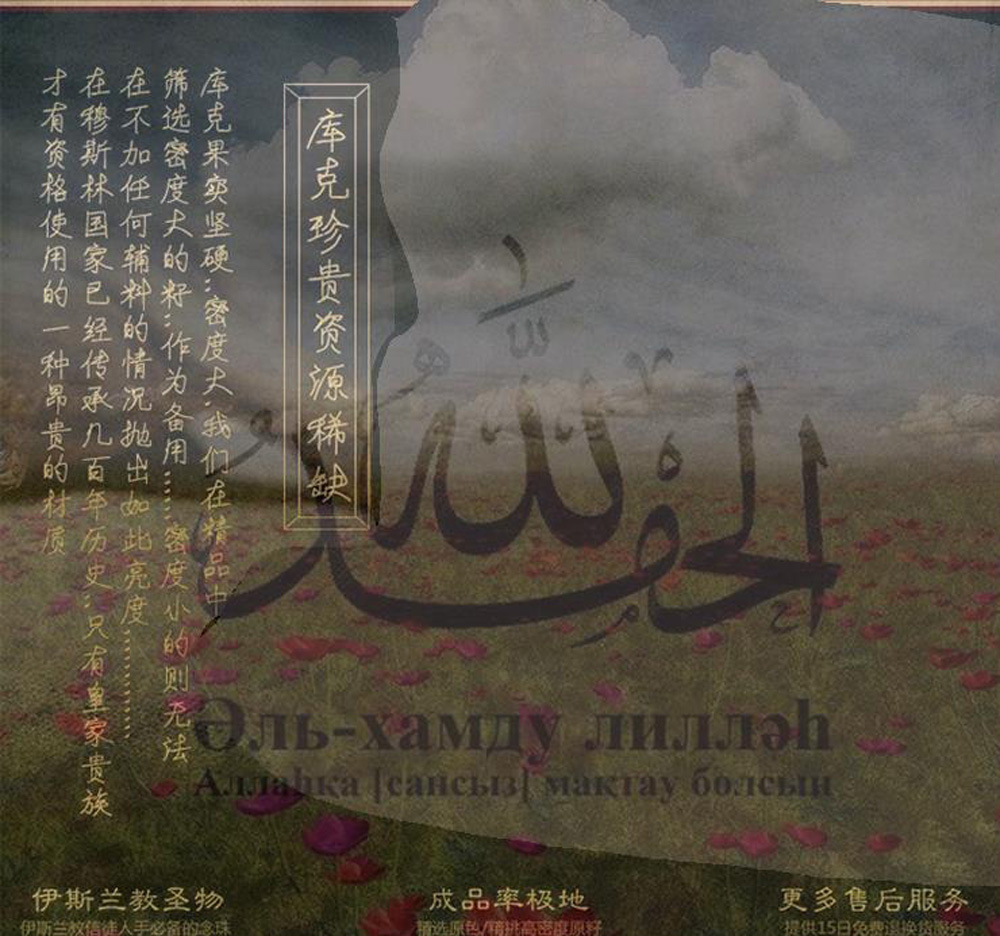 库克珍贵资源稀缺
库克果实坚硬:密度大.我们在精品中
筛选密度大的籽:作为备用......密度小的则无法
在不加任何辅料的情况抛出如此亮度............
在穆斯林国家已经传承几百年历史:只有皇家贵族
才有资格使用的一种昂贵的材质
الحمد لله
Әль-хамду лилләһ
Аллаһка [сансыз] мақтау болсын
伊斯兰教圣物
伊斯兰教信徒人手必备的念珠
成品率极地
精选原色/精挑高密度原籽
更多售后服务
提供15日免费退换货服务